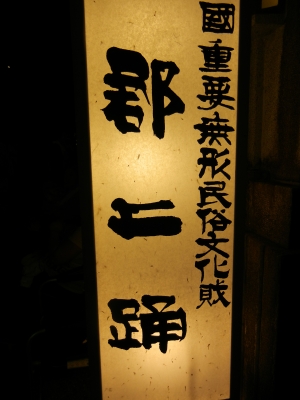 國重要無形民俗文化財
郡上踊